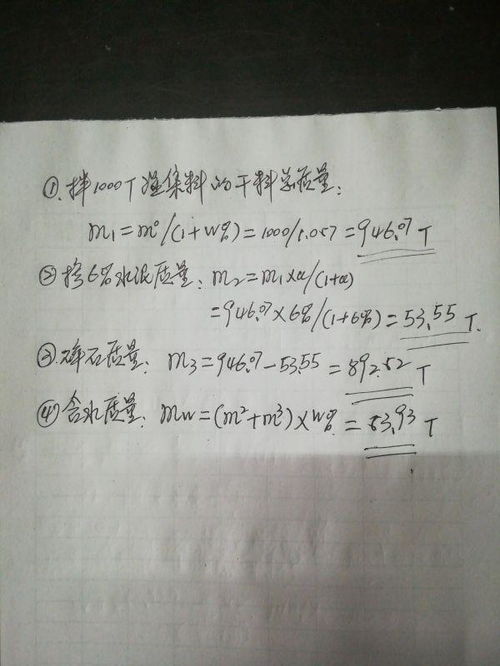 ①.拌1000T混集料的干料总质量:
m1=m0/(1+W%)=1000/1.057=946.07 T
②掺6%水泥质量: m2=m1×α/(1+α)
=946.07×6%/(1+6%)=53.55 T.
③碎石质量: m3=946.07-53.55=892.52 T
④含水质量: mw=(m2+m3)×W%=53.93 T